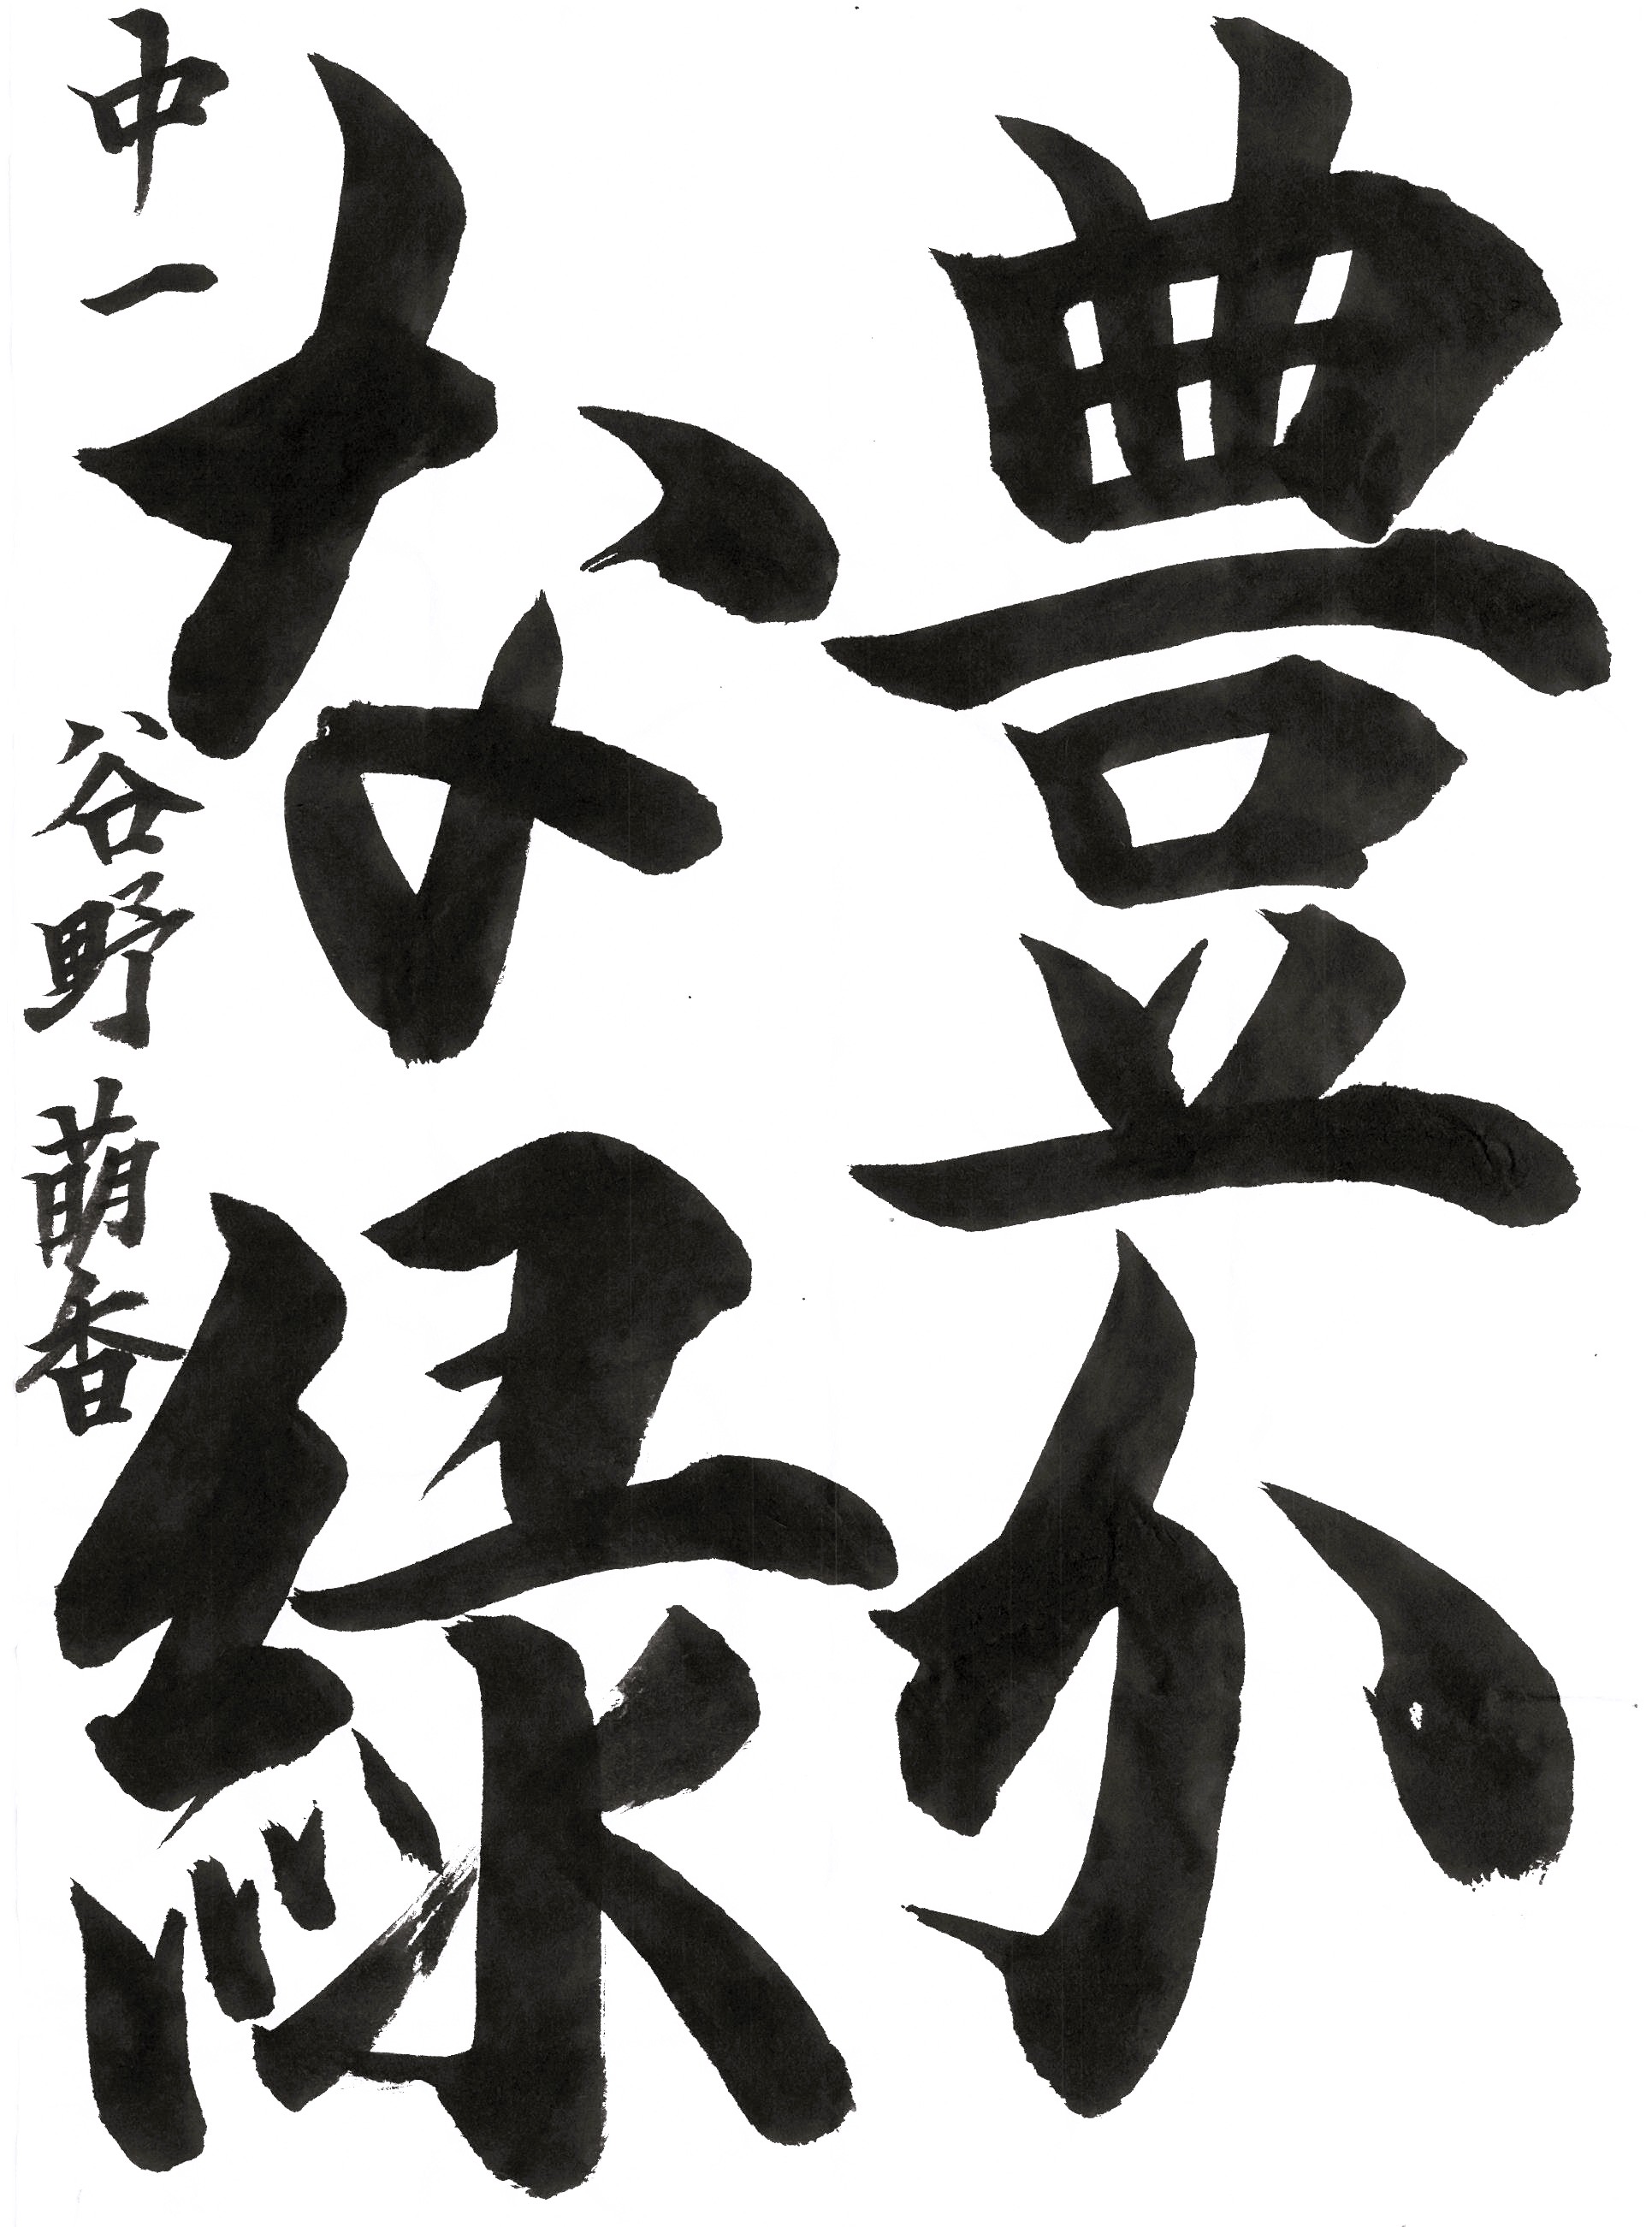 豊か
な緑
中一 谷野萌香